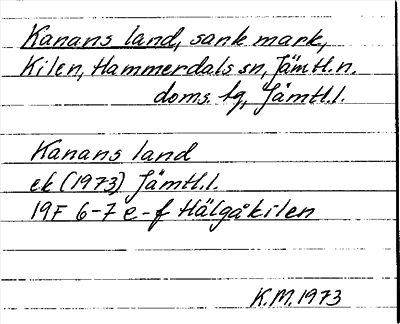 Kanans land, sank mark,
Kilen, Hammerdals sn, Jämtl.n.
doms. tg, Jämtl.l.
Kanans land
ek (1973) Jämtl.l.
19F 6-7 e-f Hälgåkilen
K.M. 1973